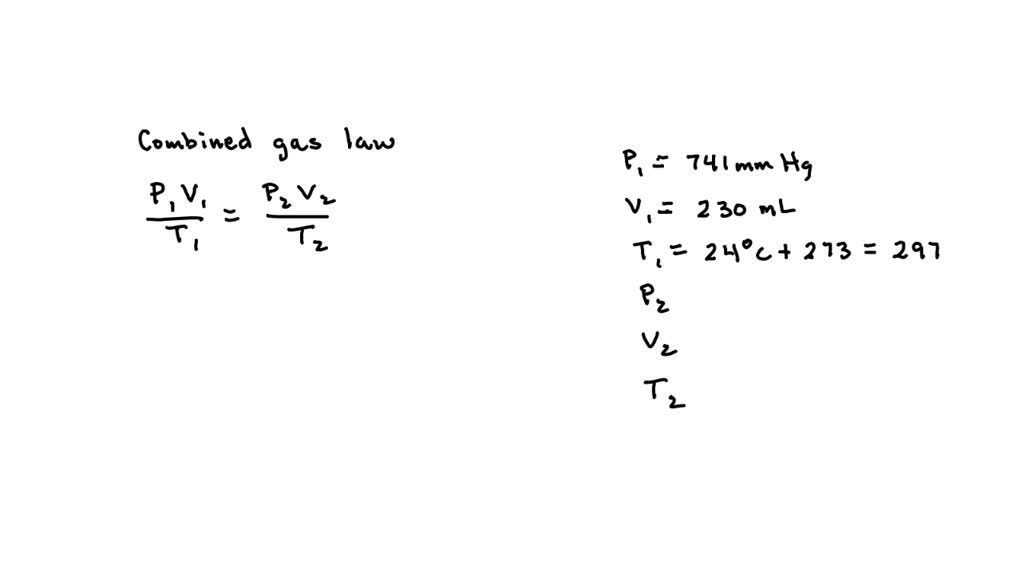 Combined gas law
P₁V₁/T₁ = P₂V₂/T₂
P₁ = 741 mm Hg
V₁ = 230 mL
T₁ = 24°C + 273 = 297
P₂
V₂
T₂